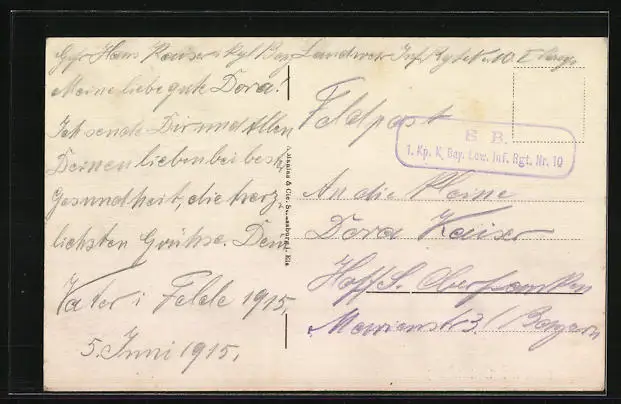 Gefr Hans Kaiser i Kgl Bay Landwehr Inf Rgt Nr 10. I Komp
Meine liebe gute Dora!
Ich sende Dir und Allen
Deinen lieben bei bester
Gesundheit, die herz-
lichsten Grühse. Dein
Vater i Felde 1915,
5. Juni 1915.
Feldpost
S. B.
1. Kp. K. Bay. Ldw. Inf. Rgt. Nr. 10
An die Kleine
Dora Kaiser
Hof/S. Oberfranken
Marienstr 3/ Bayern
& Cie.